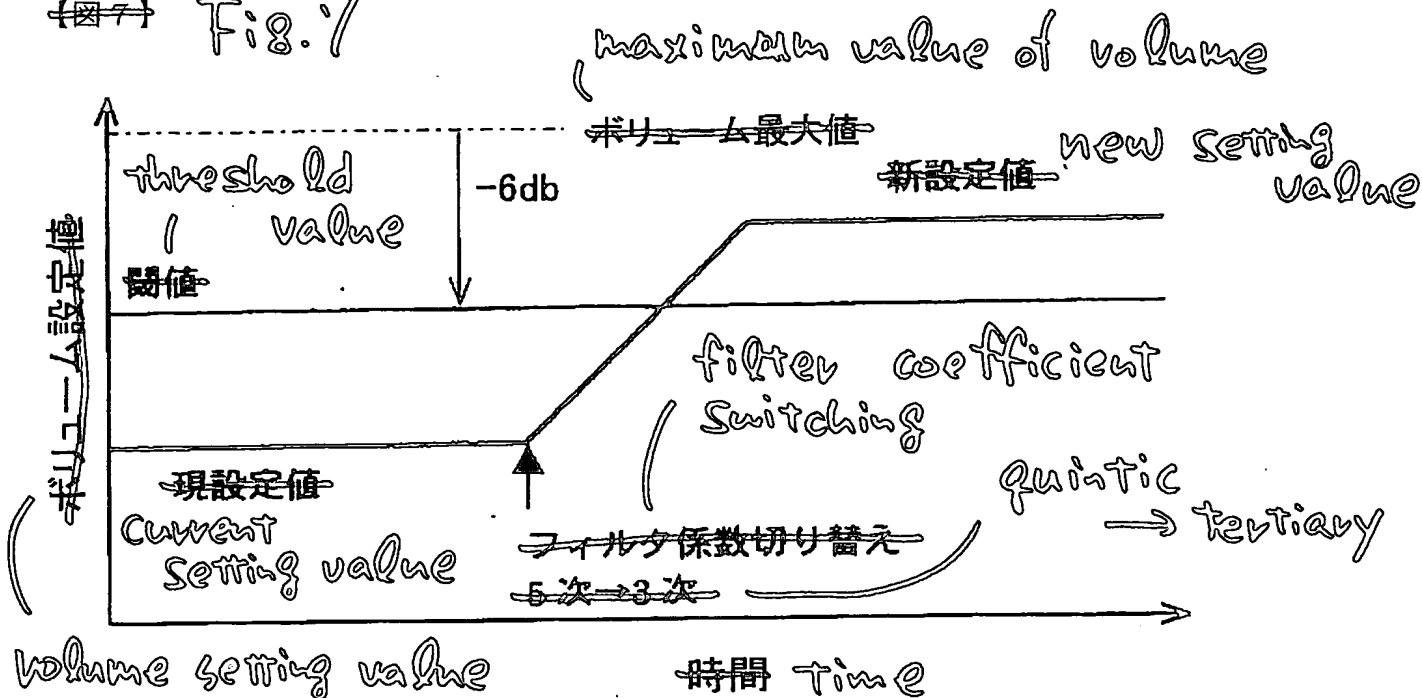 【図7】 Fig.7
maximum value of volume
ボリューム最大値
threshold
value
-6db
新設定値 new setting
value
閾値
ボリューム設定値
filter coefficient
switching
現設定値
current
setting value
quintic
→ tertiary
フィルタ係数切り替え
5次→3次
volume setting value
時間 Time